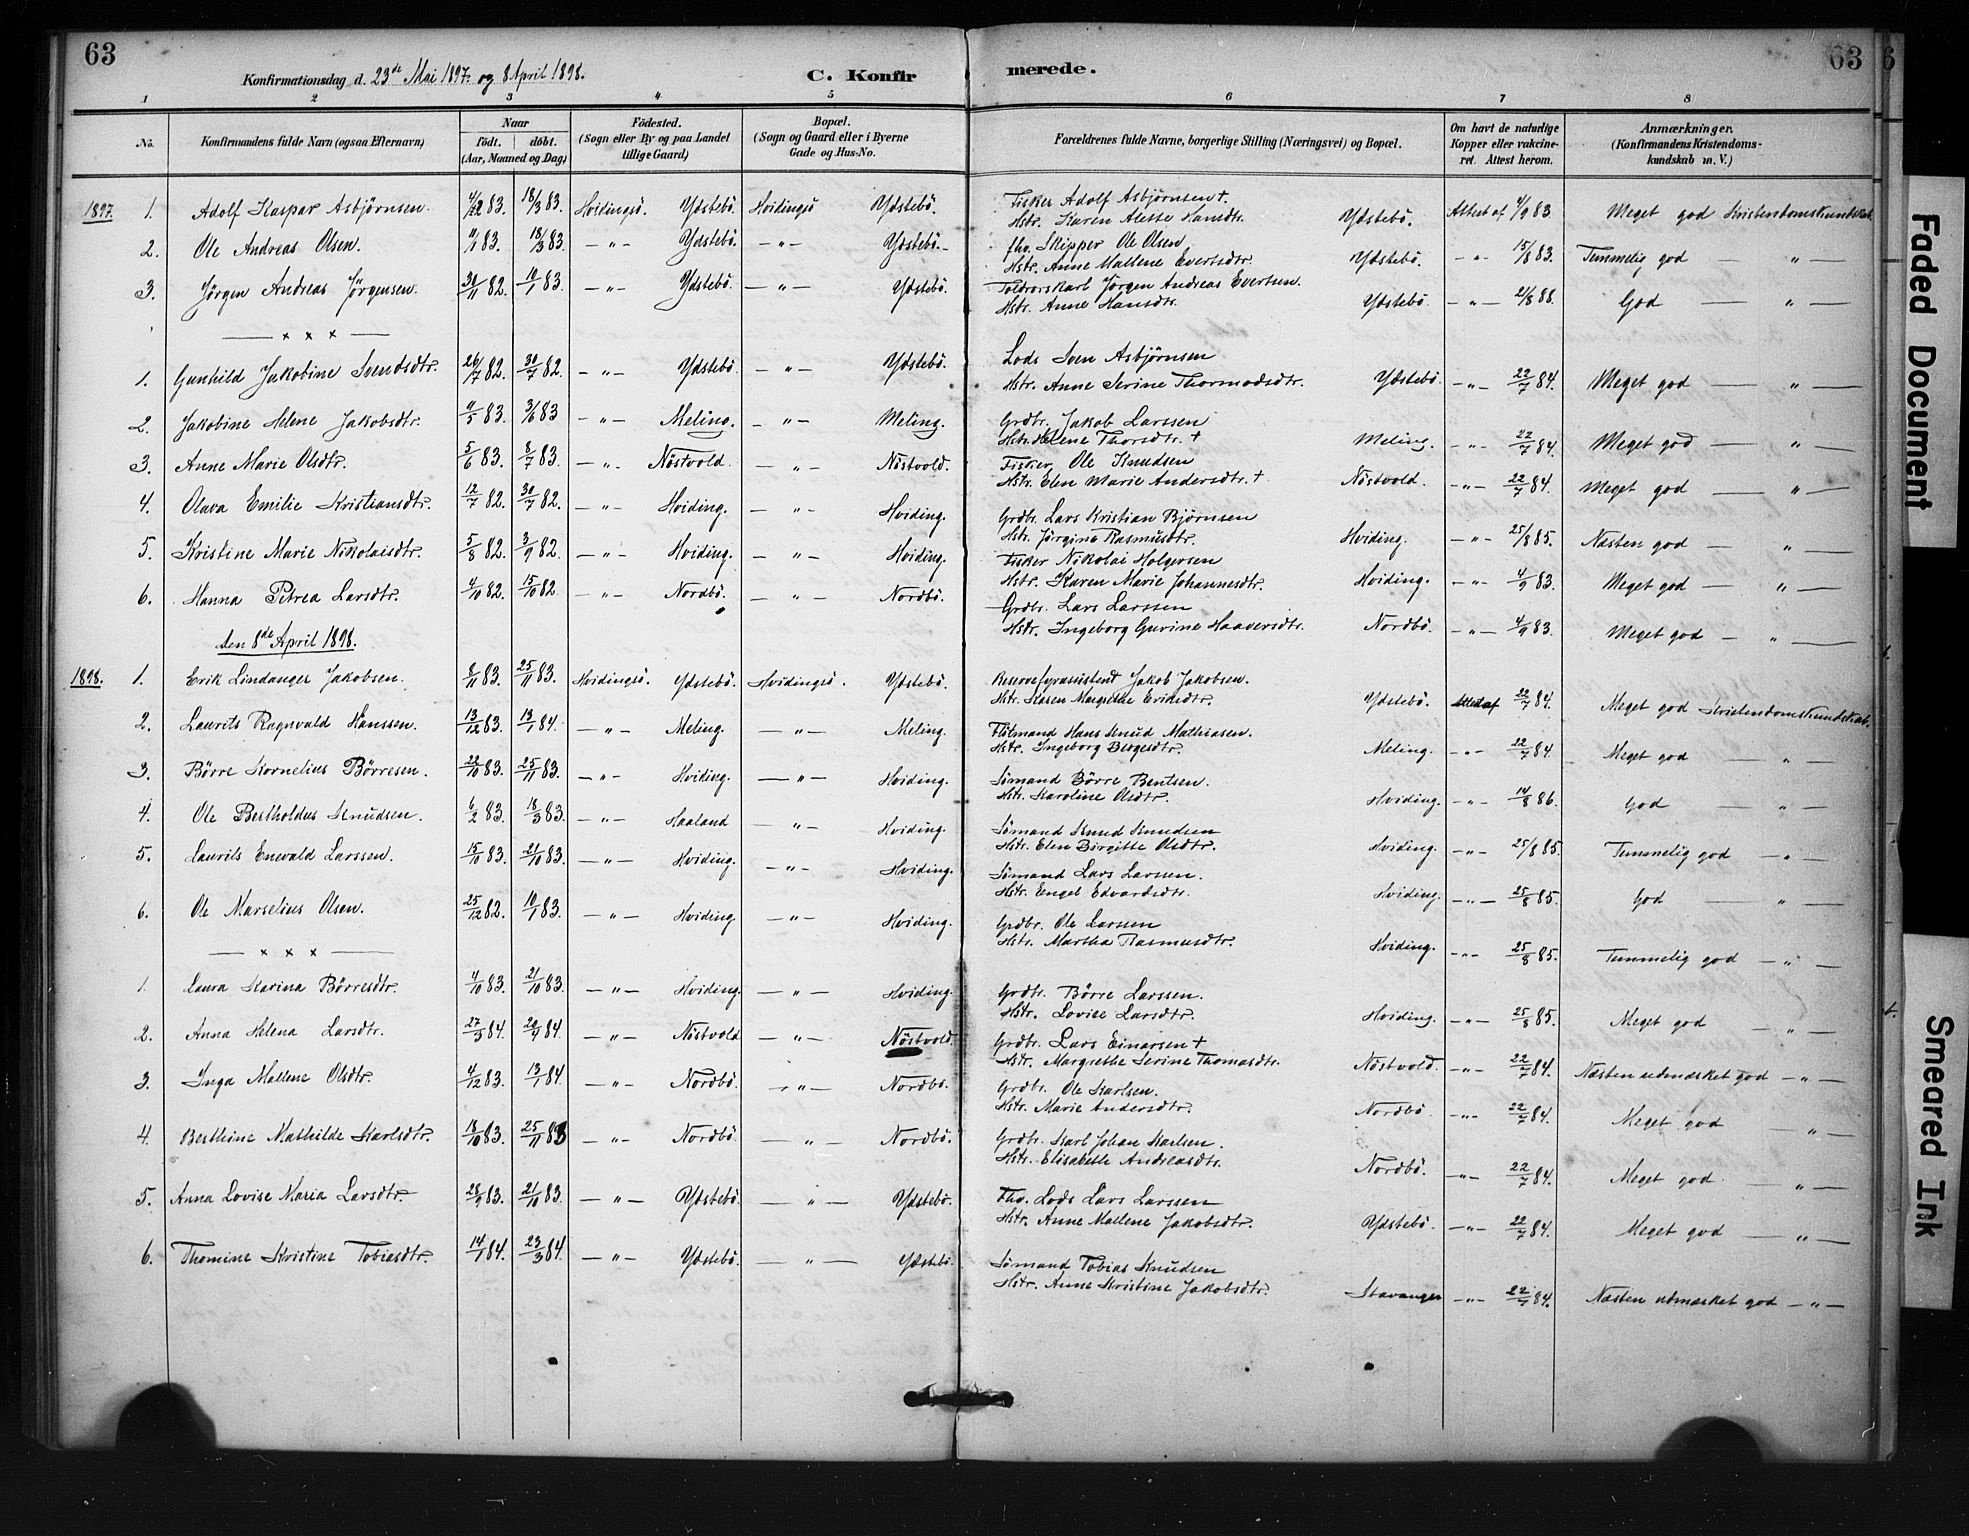 63
63
6
Konfirmationsdag d. 23de Mai 1897. og 8 April 1898.
C. Konfir
merede.
1 2 3 4 5 6 7 8
No.
Konfirmandens fulde Navn (ogsaa Efternavn)
Naar
födt. | döbt.
(Aar, Maaned og Dag)
Födested.
(Sogn eller By og paa Landet
tillige Gaard)
Bopæl.
(Sogn og Gaard eller i Byerne
Gade og Hus-No.
Forældrenes fulde Navne, borgerlige Stilling (Næringsvei) og Bopæl.
Om havt de naturlige
Kopper eller vakcine-
ret. Attest herom.
Anmærkninger.
(Konfirmandens Kristendoms-
kundskab m. V.)
1897. 1. Adolf Kaspar Asbjörnsen. 83. 18/3 83. Hvidingsö. Ydstebö. Hvidingsö Ydstebö. Fisker Adolf Asbjörnsen +
Hstr. Karen Alette Hansdtr. Ydstebö. Attest af 4/9 83. Meget god Kristendomskundskab.
2. Ole Andreas Olsen. 83. 18/3 83. — " — Ydstebö. — " — Ydstebö. fhv. Skipper Ole Olsen
Hstr. Anne Mallene Evertsdtr. Ydstebö. - " - 15/8 83. Temmelig god — " —
3. Jörgen Andreas Jörgensen. 30/11 82. 10/1 83. — " — Ydstebö. — " — Ydstebö. Toldrorskarl Jörgen Andreas Evertsen.
Hstr. Anne Hansdtr. Ydstebö. - " - 2/8 88. God — " —
— x x x —
1. Gunhild Jakobine Svendsdtr. 26/7 82. 30/7 82. — " — Ydstebö. — " — Ydstebö. Lods Sven Asbjörnsen
Hstr. Anne Serine Thormodsdtr. Ydstebö. - " - 22/7 84. Meget god — " —
2. Jakobine Helene Jakobsdtr. 11/5 83. 3/6 83 — " — Meling. — " — Meling. Grdbr. Jakob Larssen
Hstr. Helene Thorsdtr. + Meling. - " - 22/7 84. Meget god — " —
3. Anne Marie Olsdtr. 5/6 83. 8/7 83. — " — Nöstvold. — " — Nöstvold. Fisker Ole Knudsen
Hstr. Elen Marie Andersdtr. + Nöstvold. - " - 22/7 84. Meget god — " —
4. Olava Emilie Kristiansdtr. 12/7 82. 30/7 82. — " — Hviding. — " — Hviding. Grdbr. Lars Kristian Björnsen
Hstr. Jörgine Rasmusdtr. Hviding. - " - 25/8 85. Næsten god — " —
5. Kristine Marie Nikolaisdtr. 5/8 82. 3/9 82. — " — Hviding. — " — Hviding. Fisker Nikolai Holgersen
Hstr. Karen Marie Johannesdtr. Hviding. - " - 4/9 83. Meget god — " —
6. Hanna Petrea Larsdtr. 4/10 82. 15/10 82. — " — Nordbö. — " — Nordbö. Grdbr. Lars Larssen
Hstr. Ingeborg Gurine Haaversdtr. Nordbö. - " - 4/9 83. Meget god — " —
den 8de April 1898.
1898. 1. Erik Lindanger Jakobsen. 8/11 83. 25/11 83. Hvidingsö. Ydstebö. Hvidingsö. Ydstebö. Reservefyrassistent Jakob Jakobsen.
Hstr. Karen Margrethe Eriksdtr. Ydstebö. Attest af 22/7 84. Meget god Kristendomskundskab.
2. Laurits Ragnvald Hanssen. 13/12 83. 13/1 84. — " — Meling. — " — Meling. Hans Knud Mathiasen.
Hstr. Ingeborg Börgesdtr. Meling. - " - 22/7 84. Meget god — " —
3. Börre Kornelius Börresen. 22/10 83. 25/11 83. — " — Hviding. — " — Hviding. Sömand Börre Bentsen.
Hstr. Karoline Olsdtr. Hviding. - " - 14/8 86. God — " —
4. Ole Bertholdus Knudsen. 6/2 83. 18/3 83. — " — Haaland — " — Hviding. Sömand Knud Knudsen
Hstr. Elen Birgitte Olsdtr. Hviding. - " - 25/8 85. Temmelig god — " —
5. Laurits Enevald Larssen. 15/10 83. 21/10 83. — " — Hviding. — " — Hviding. Sömand Lars Larssen.
Hstr. Engel Edvardsdtr. Hviding. - " - 25/8 85. God — " —
6. Ole Marselius Olsen. 25/12 82. 10/1 83. — " — Hviding. — " — Hviding. Grdbr. Ole Larssen
Hstr. Martha Rasmusdtr. Hviding. - " - 25/8 85. Temmelig god — " —
— x x x —
1. Laura Karina Börresdtr. 4/10 83. 21/10 83. — " — Hviding. — " — Hviding. Grdbr. Börre Larssen.
Hstr. Lovise Larsdtr. Hviding. - " - 25/8 85. Meget god — " —
2. Anna Helena Larsdtr. 27/3 84. 20/4 84. — " — Nöstvold — " — Nöstvold. Grdbr. Lars Einarsen +
Hstr. Margrethe Serine Thomasdtr. Nöstvold. - " - 22/7 84. Næsten udmærket god — " —
3. Inga Mallene Olsdtr. 4/12 83. 13/1 84. — " — Nordbö. — " — Nordbö. Grdbr. Ole Karlsen.
Hstr. Marie Andersdtr. Nordbö. - " - 22/7 84. Meget god — " —
4. Berthine Mathilde Karlsdtr. 18/10 83. 25/11 83 — " — Nordbö. — " — Nordbö. Grdbr. Karl Johan Karlsen.
Hstr. Elisabeth Andreasdtr. Nordbö. - " - 22/7 84. Meget god — " —
5. Anna Lovise Maria Larsdtr. 28/9 83. 21/10 83. — " — Ydstebö. — " — Ydstebö. Fhv. Lods Lars Larssen
Hstr. Anne Mallene Jakobsdtr. Ydstebö. - " - 22/7 84. Meget god — " —
6. Thomine Kristine Tobiasdtr. 14/1 84. 23/3 84. — " — Ydstebö. — " — Ydstebö. Sömand Tobias Knudsen
Hstr. Anne Kristine Jakobsdtr. Stavanger - " - 22/7 84. Næsten udmærket god — " —
Faded Document
Smeared Ink